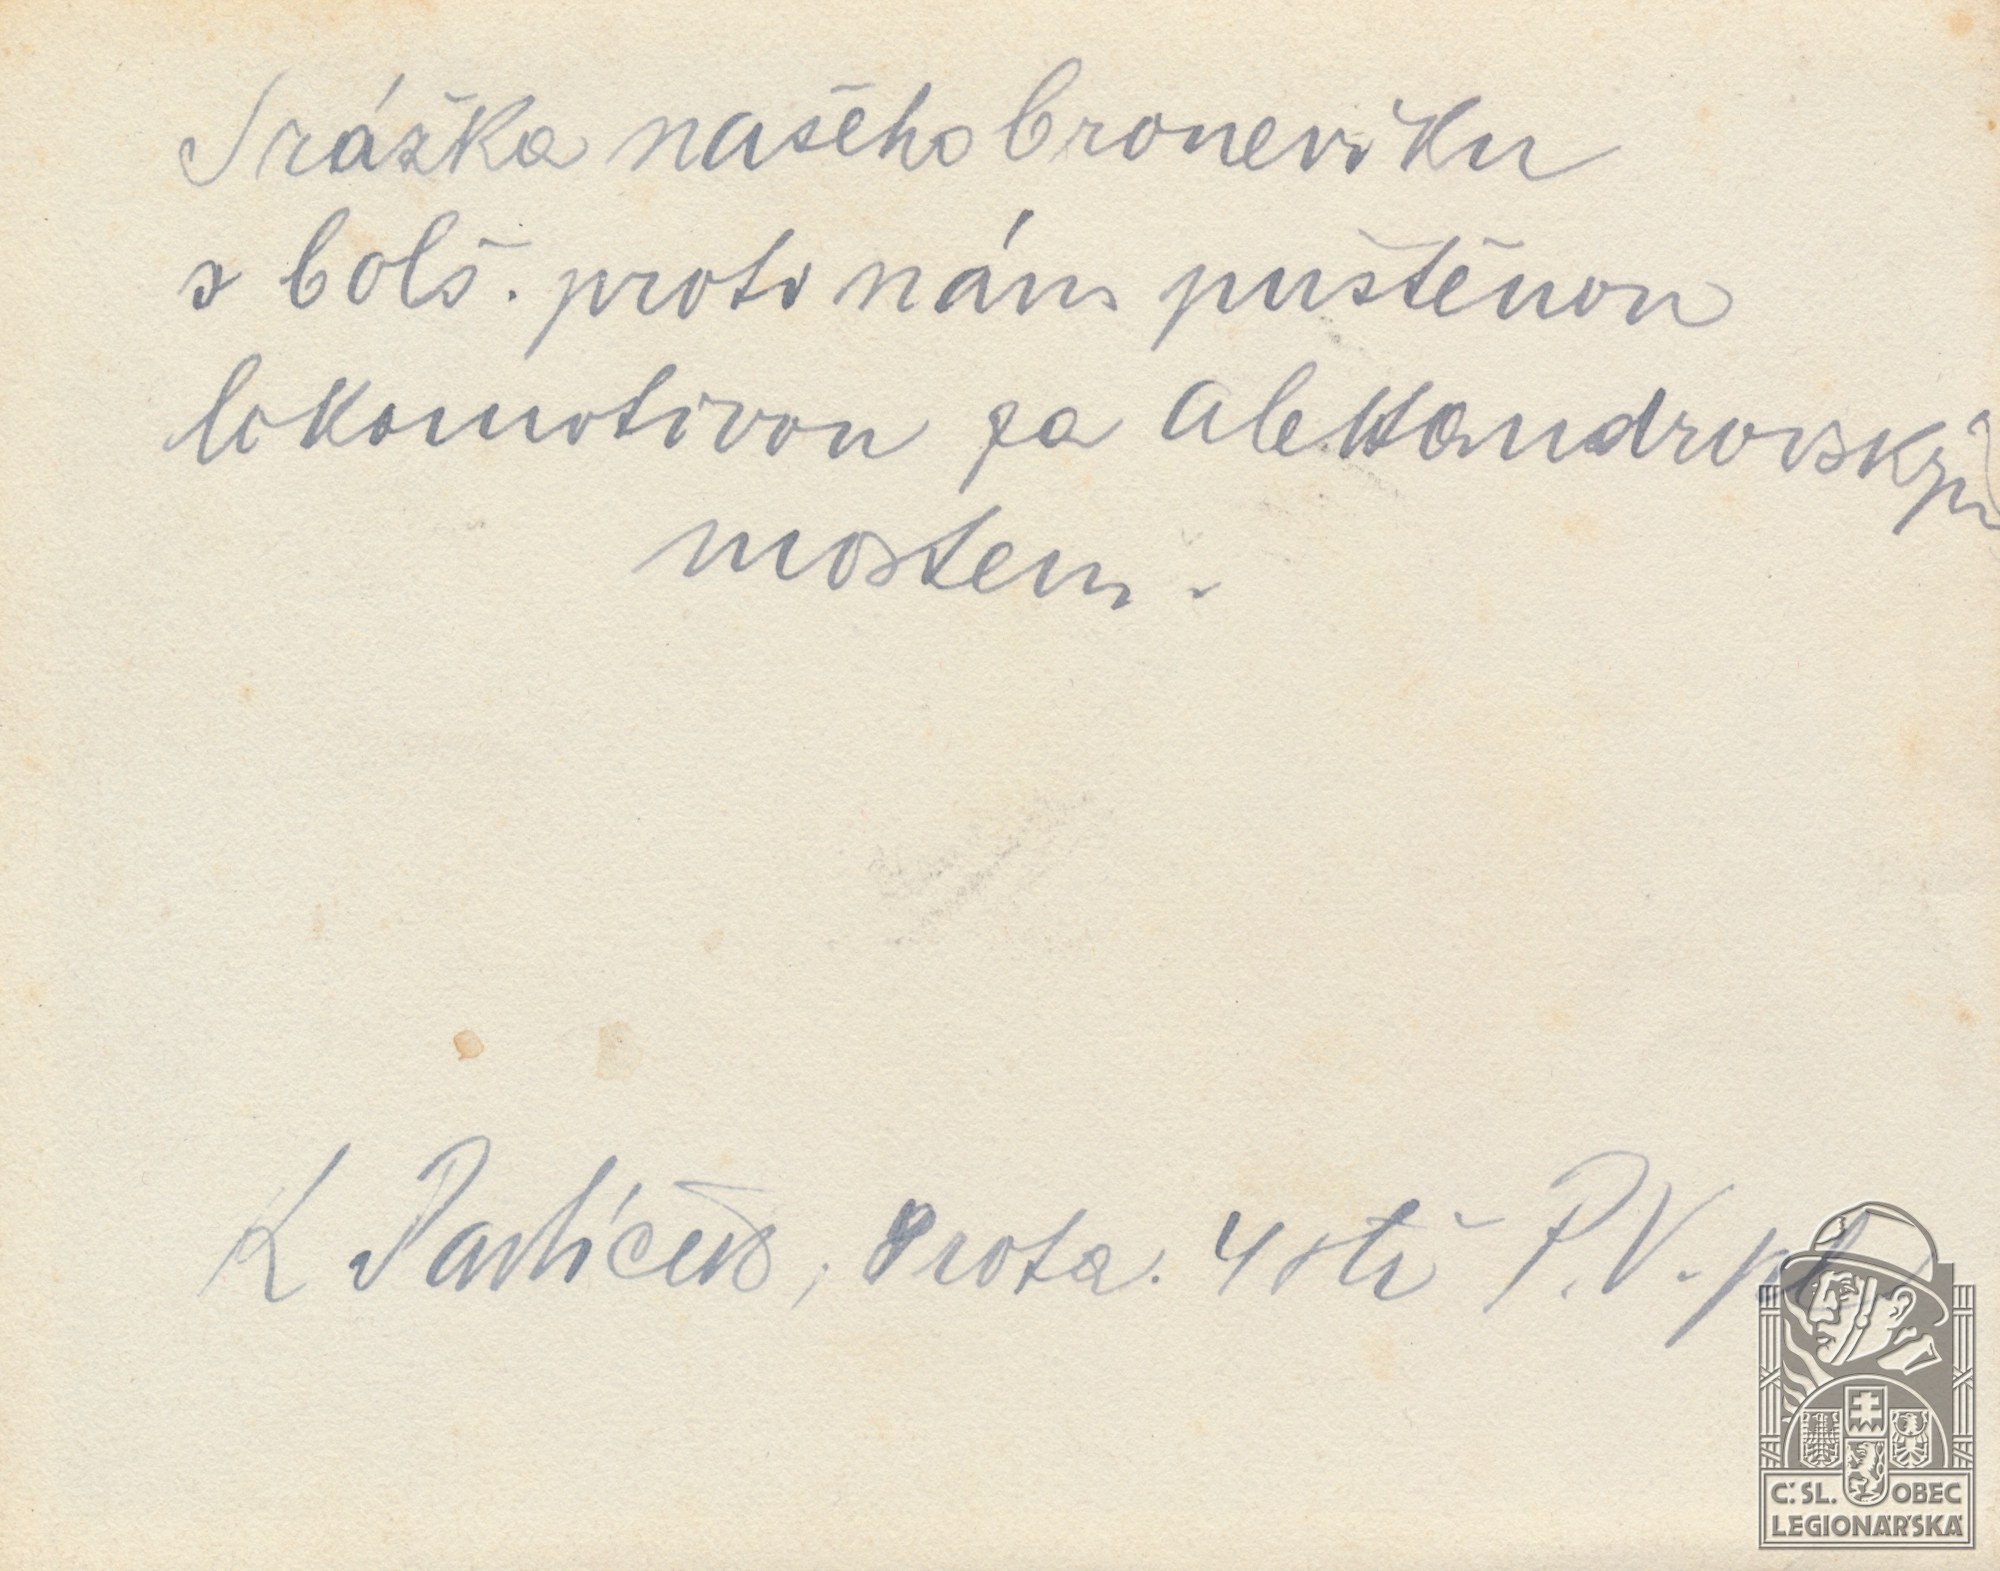 Srážka našeho broneviku
s bolš. proti nám puštěnou
lokomotivou za Alexandrovským
mostem.
K Pavlíček, 8 rota. 4 stř P.V. pl
Č. SL. OBEC
LEGIONÁŘSKÁ